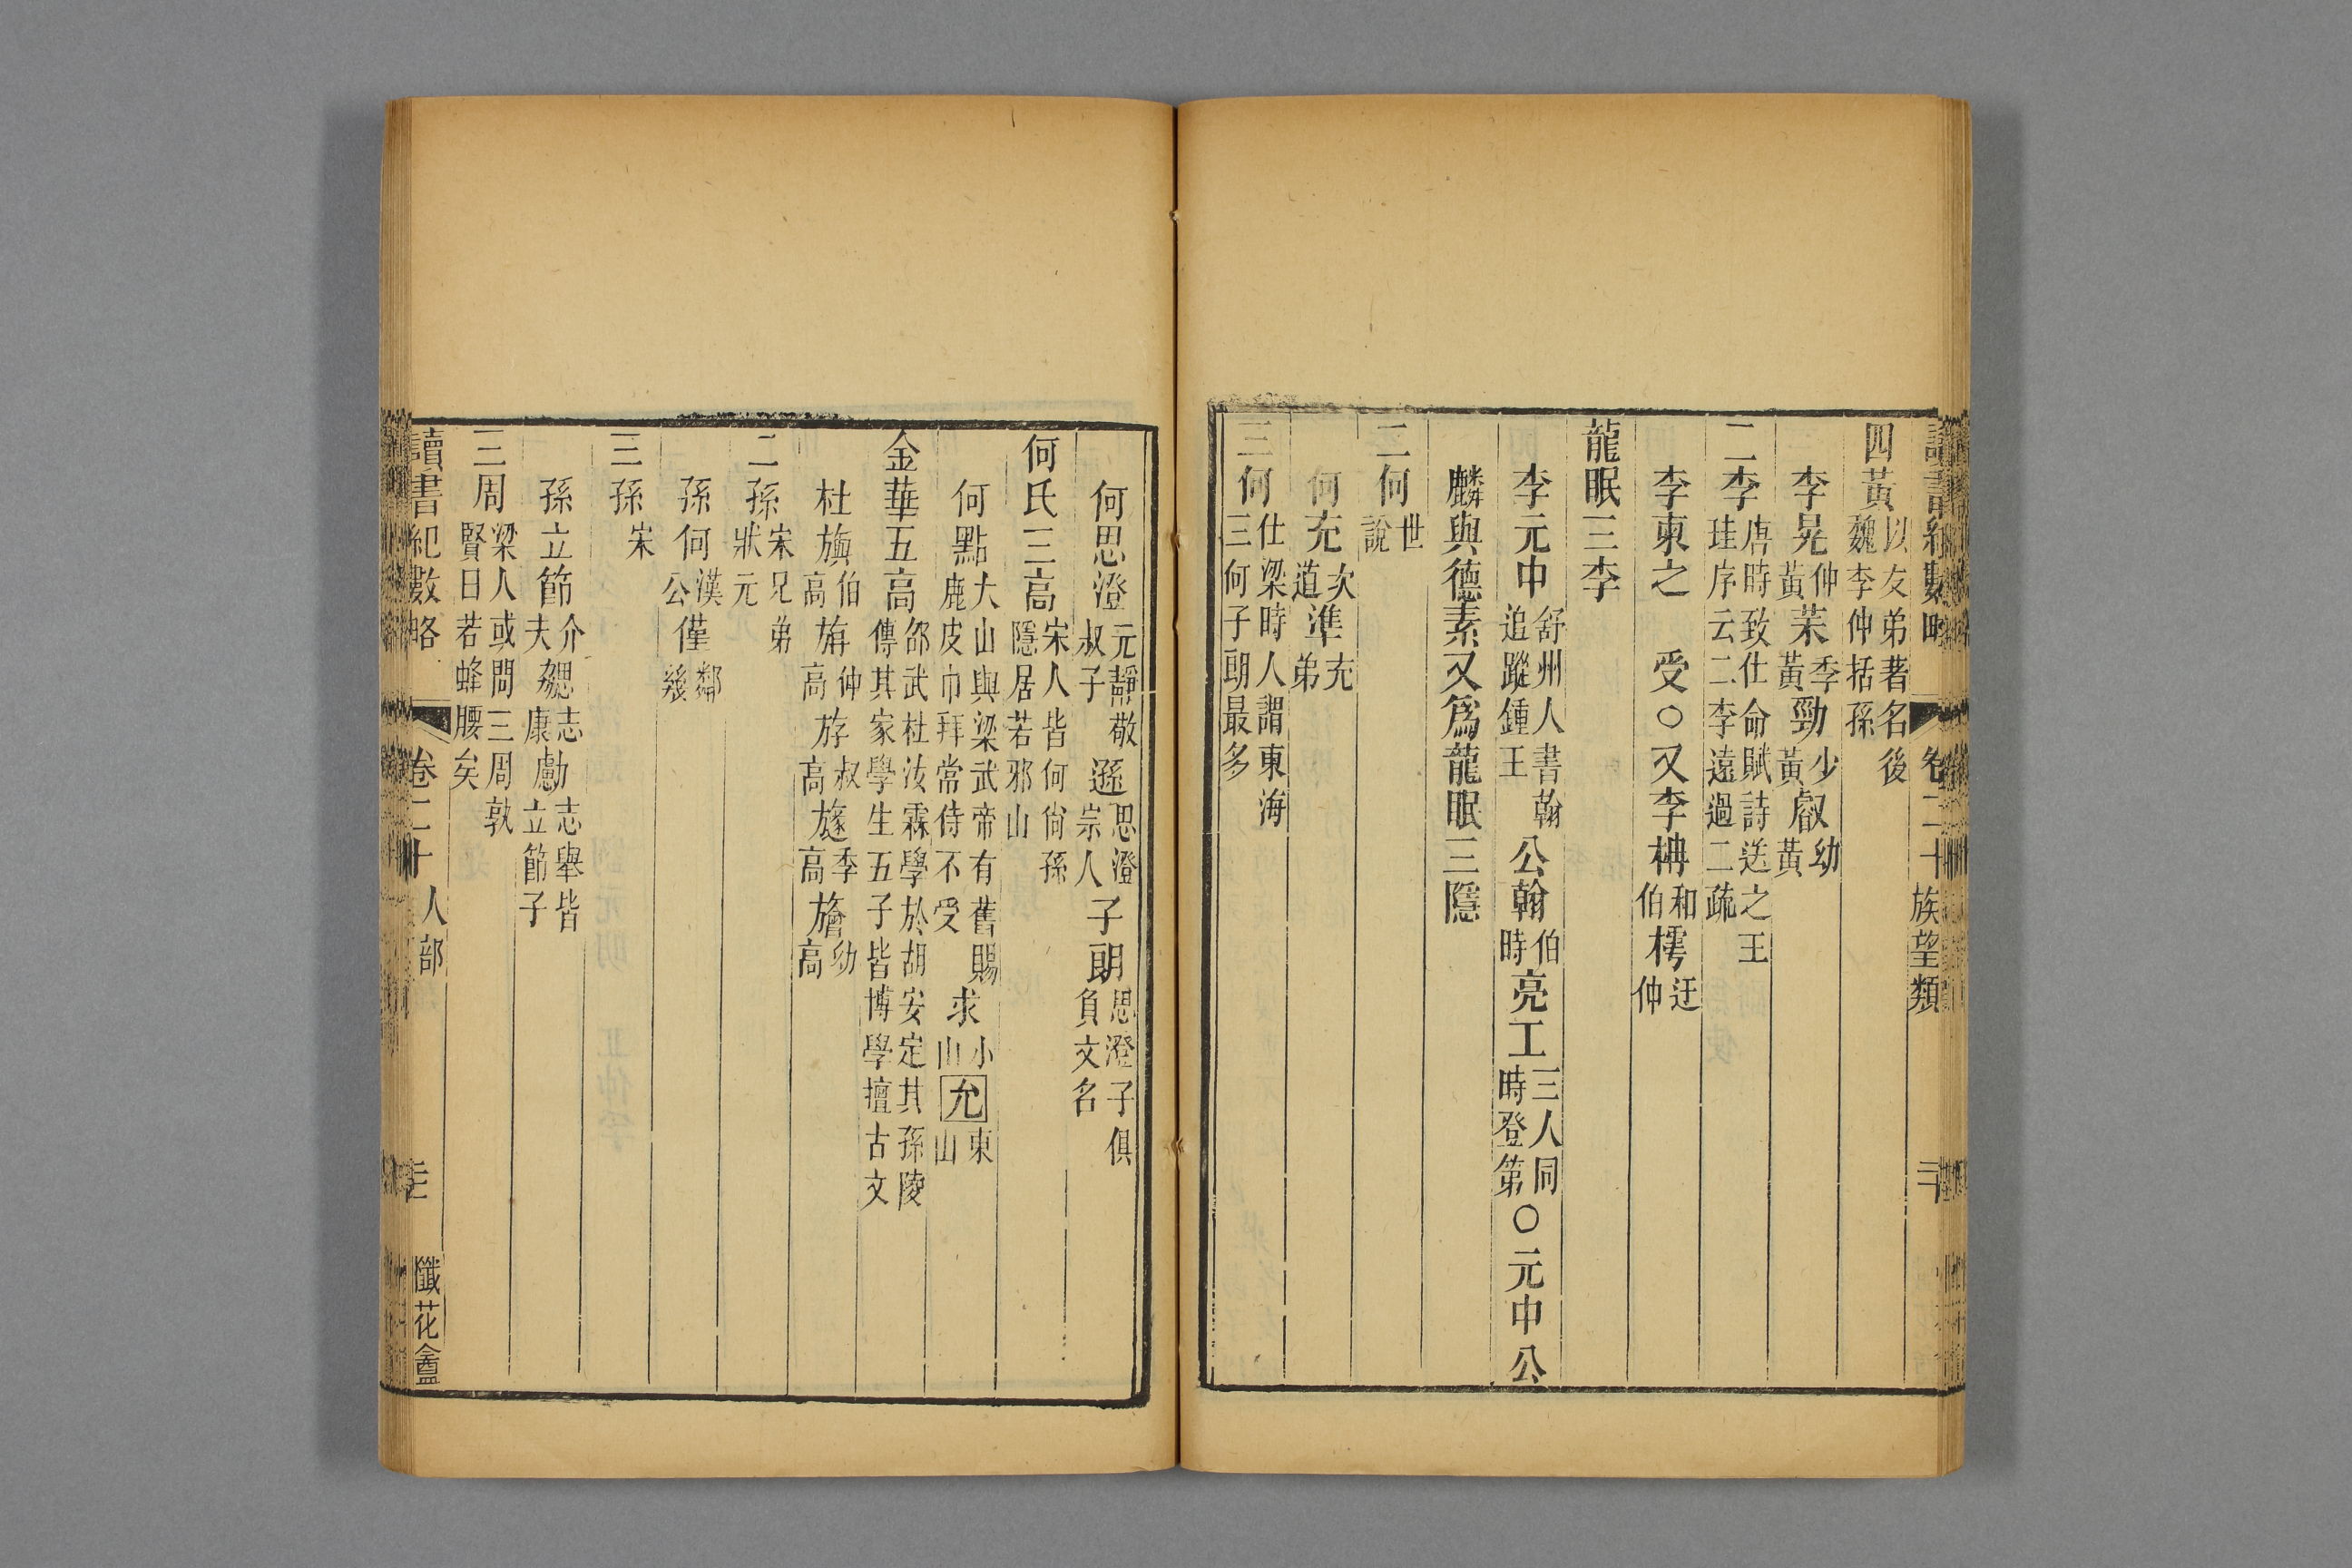 讀書紀數略 卷二十 族望類 三十
四黃 以友弟著名後魏李仲括孫
李晃 仲黃 茉 季黃 勁 少黃 叡 幼黃
二李 唐時致仕命賦詩送之王珪序云二李遠過二疏
李東之 受○又李柟 和伯 樗 迂仲
龍眠三李
李元中 舒州人書翰追蹤鍾王 公翰 伯時 亮工 三人同時登第 ○元中公
麟與德素又為龍眠三隱
二何 世說
何充 次道 準 充弟
三何 仕梁時人謂東海三何子朗最多
何思澄 元靜敬叔子 遜 思澄宗人 子朗 思澄子俱負文名
何氏三高 宋人皆何尚孫隱居若邪山
何點 大山與梁武帝有舊賜鹿皮巾拜常侍不受 求 小山 允 東山
金華五高 邵武杜汝霖學於胡安定其孫陵傳其家學生五子皆博學擅古文
杜旟 伯高 旃 仲高 斿 叔高 旞 季高 旝 幼高
二孫 宋兄弟狀元
孫何 漢公 僅 鄰幾
三孫 宋
孫立節 介夫 勰 志康 勴 志舉皆立節子
三周 梁人或問三周孰賢曰若蜂腰矣
讀書紀數略 卷二十 人部 三十一 懺花盦